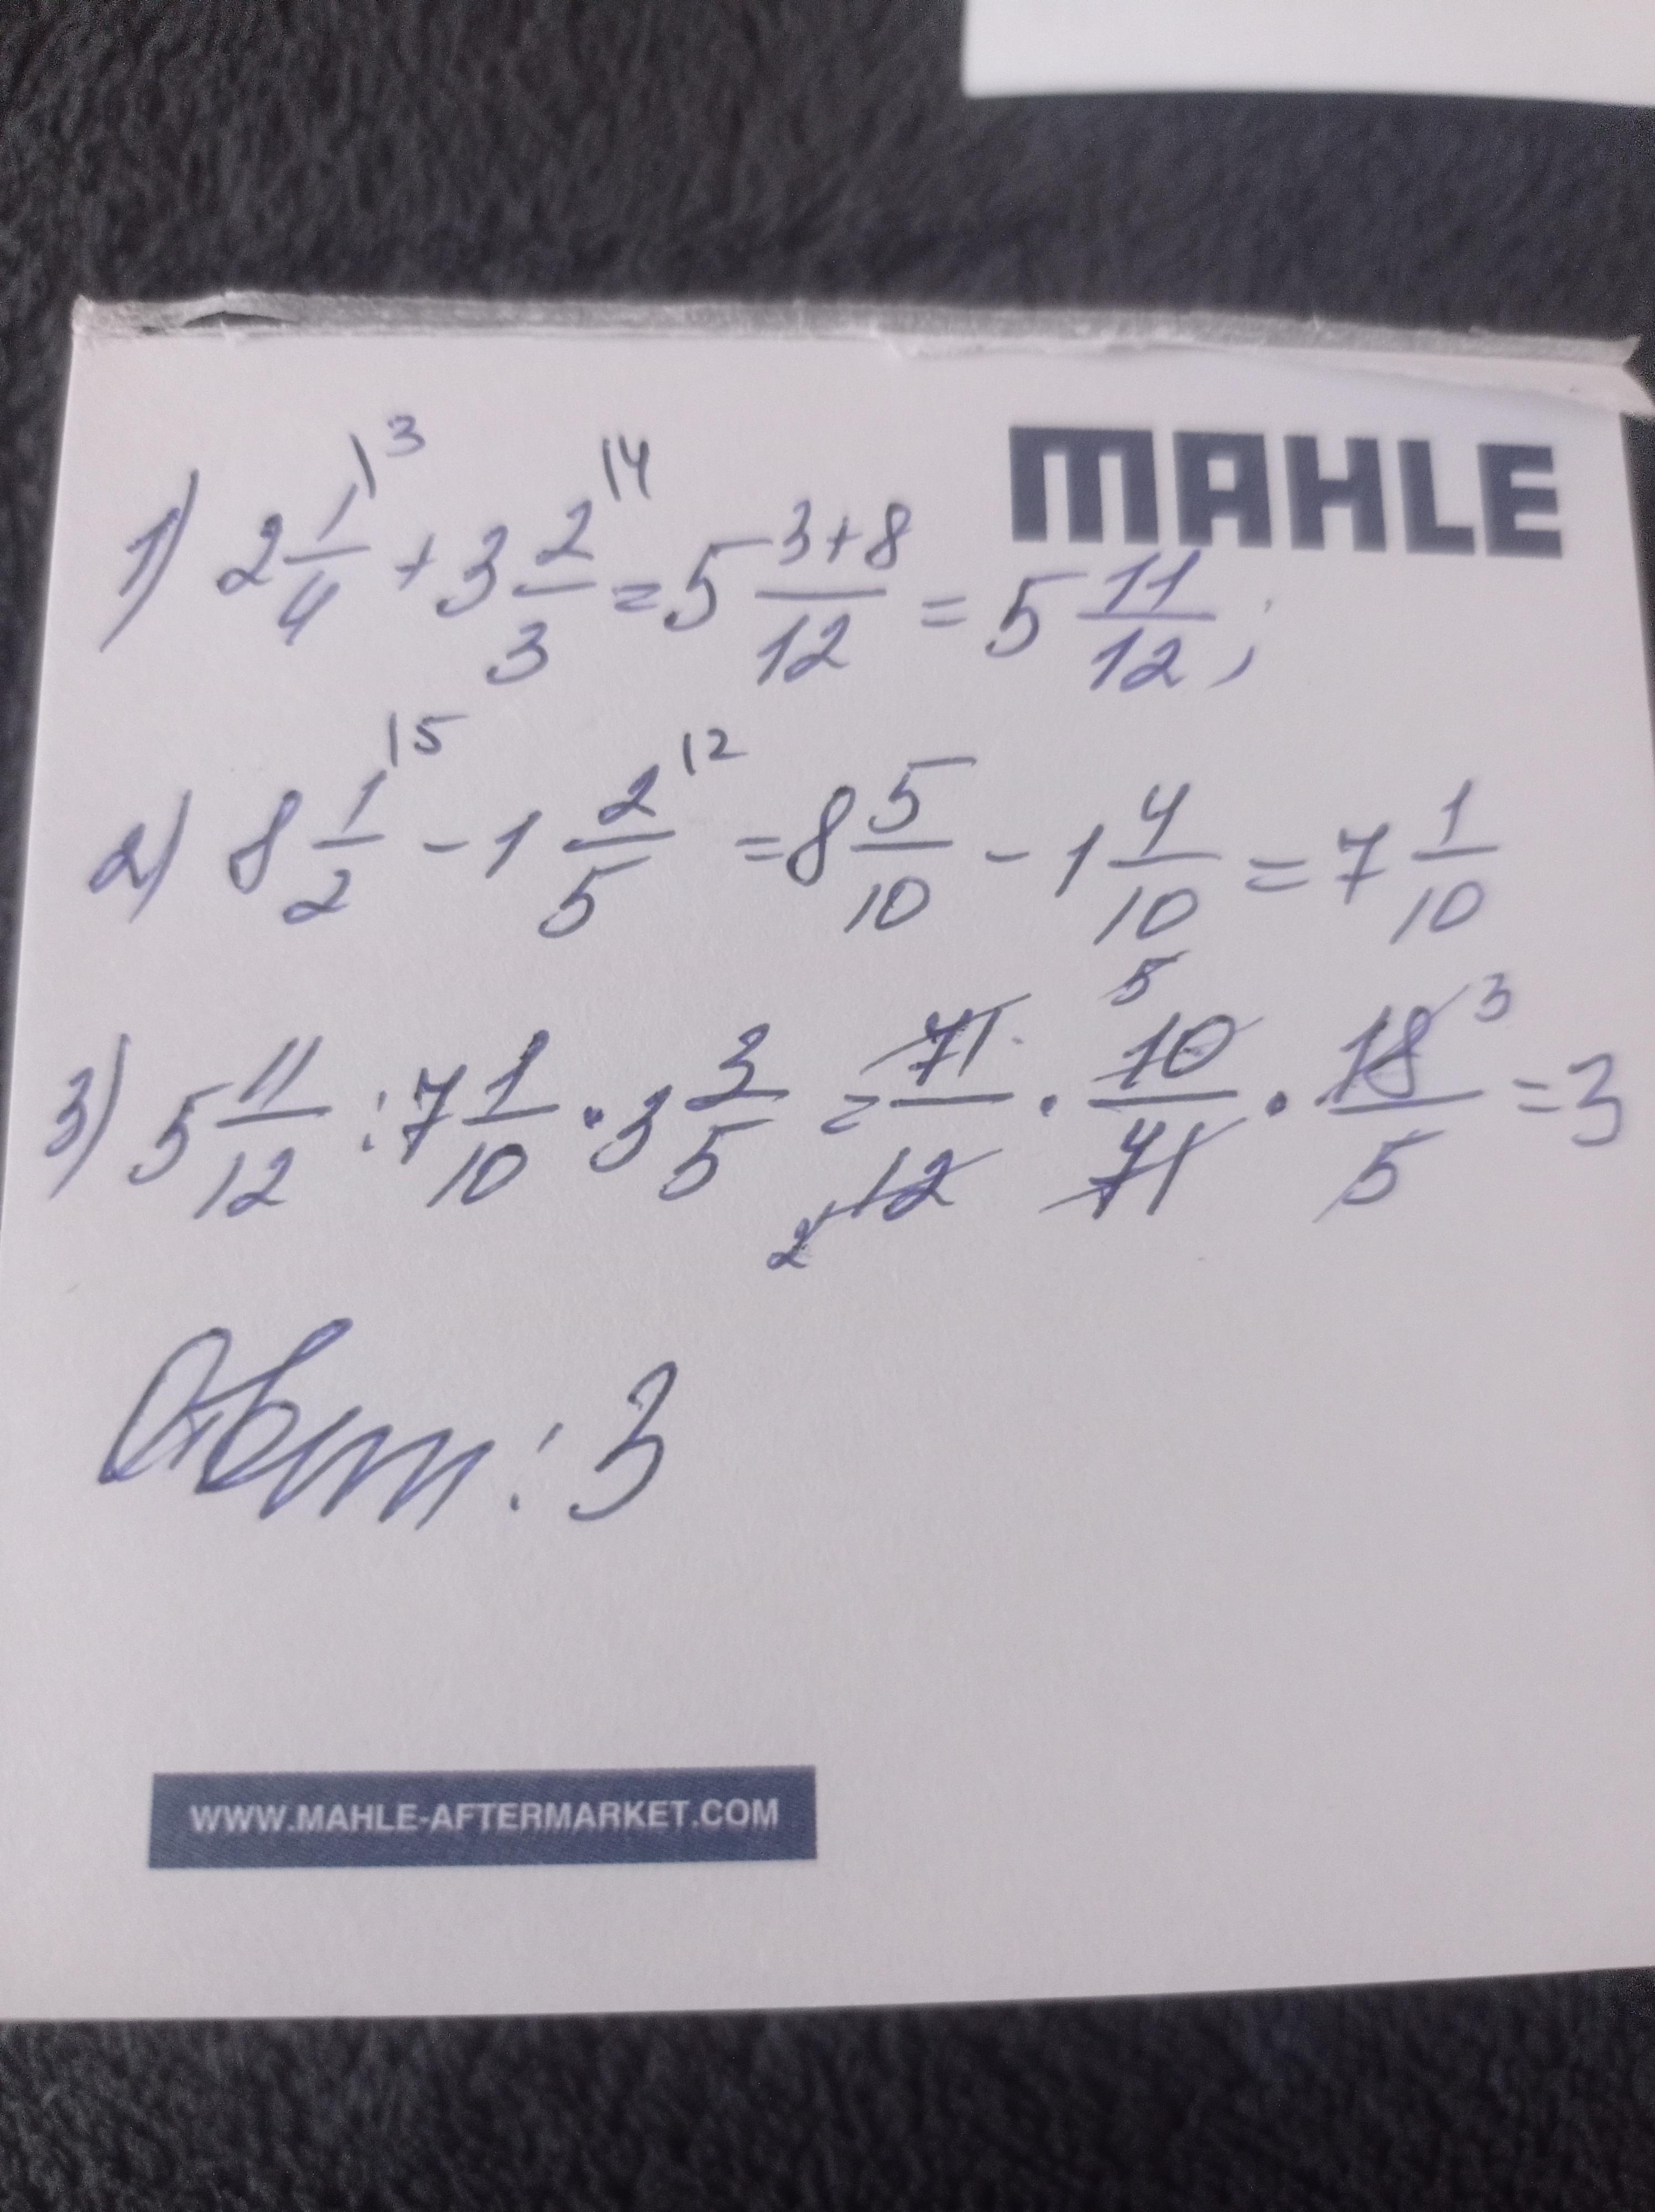 MAHLE
1) 2 1/4 \3 + 3 2/3 \4 = 5 (3+8)/12 = 5 11/12;
2) 8 1/2 \5 - 1 2/5 \2 = 8 5/10 - 1 4/10 = 7 1/10
3) 5 11/12 : 7 1/10 · 3 3/5 = 71/12 2 · 5 10/71 · 18 3/5 = 3
Ответ: 3
WWW.MAHLE-AFTERMARKET.COM